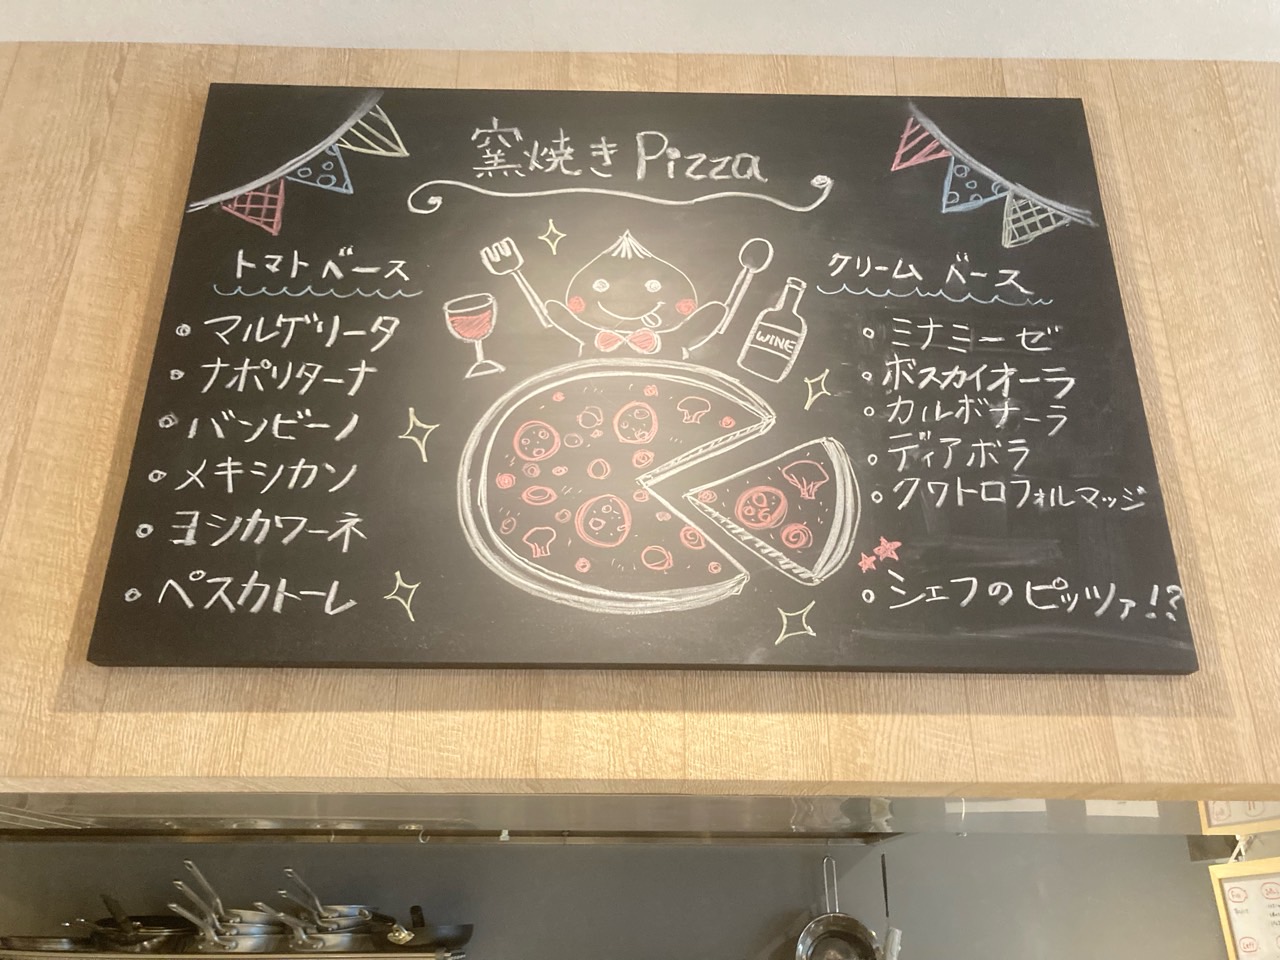 窯焼きPizza
トマトベース
マルゲリータ
ナポリターナ
バンビーノ
メキシカン
ヨシカワーネ
ペスカトーレ
WINE
クリームベース
ミナミーゼ
ボスカイオーラ
カルボナーラ
ディアボラ
クワトロフォルマッジ
シェフのピッツァ!?